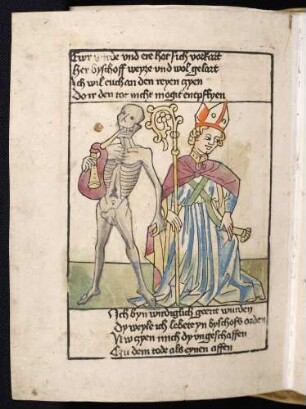 Ewr wirde und ere hot sich vorkart
Her byschoff weyze und wol gelart
Ich wil euch an den reyen zyen
Do ir den tot nicht mogt entpflyen
Ich byn wirdiglich geert wurden
Dy weyle ich lebete yn byschofs orden
Nw zyen mich dy ungeschaffen
Czu dem tode als eynen affen